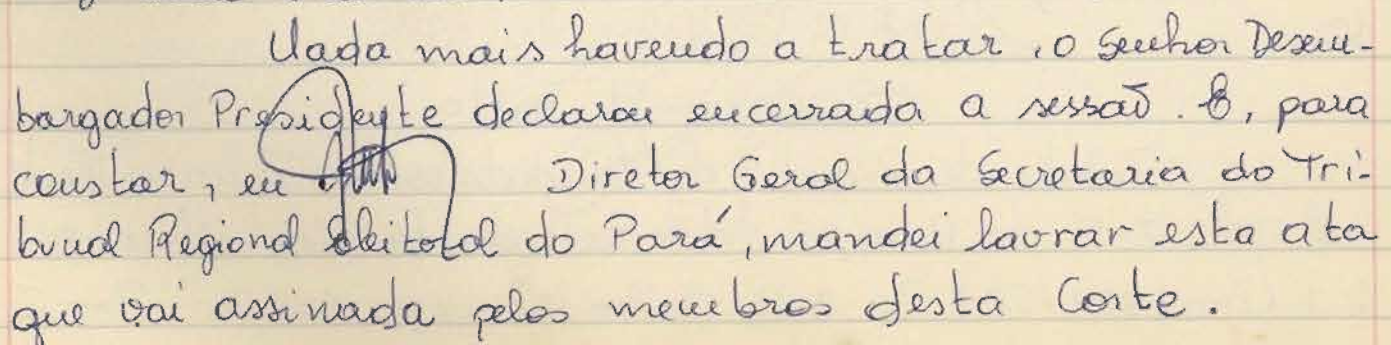 Nada mais havendo a tratar, o Senhor Desem-
bargador Presidente declarou encerrada a sessão. E, para
constar, eu Diretor Geral da Secretaria do Tri-
bunal Regional Eleitoral do Pará, mandei lavrar esta ata
que vai assinada pelos membros desta Corte.